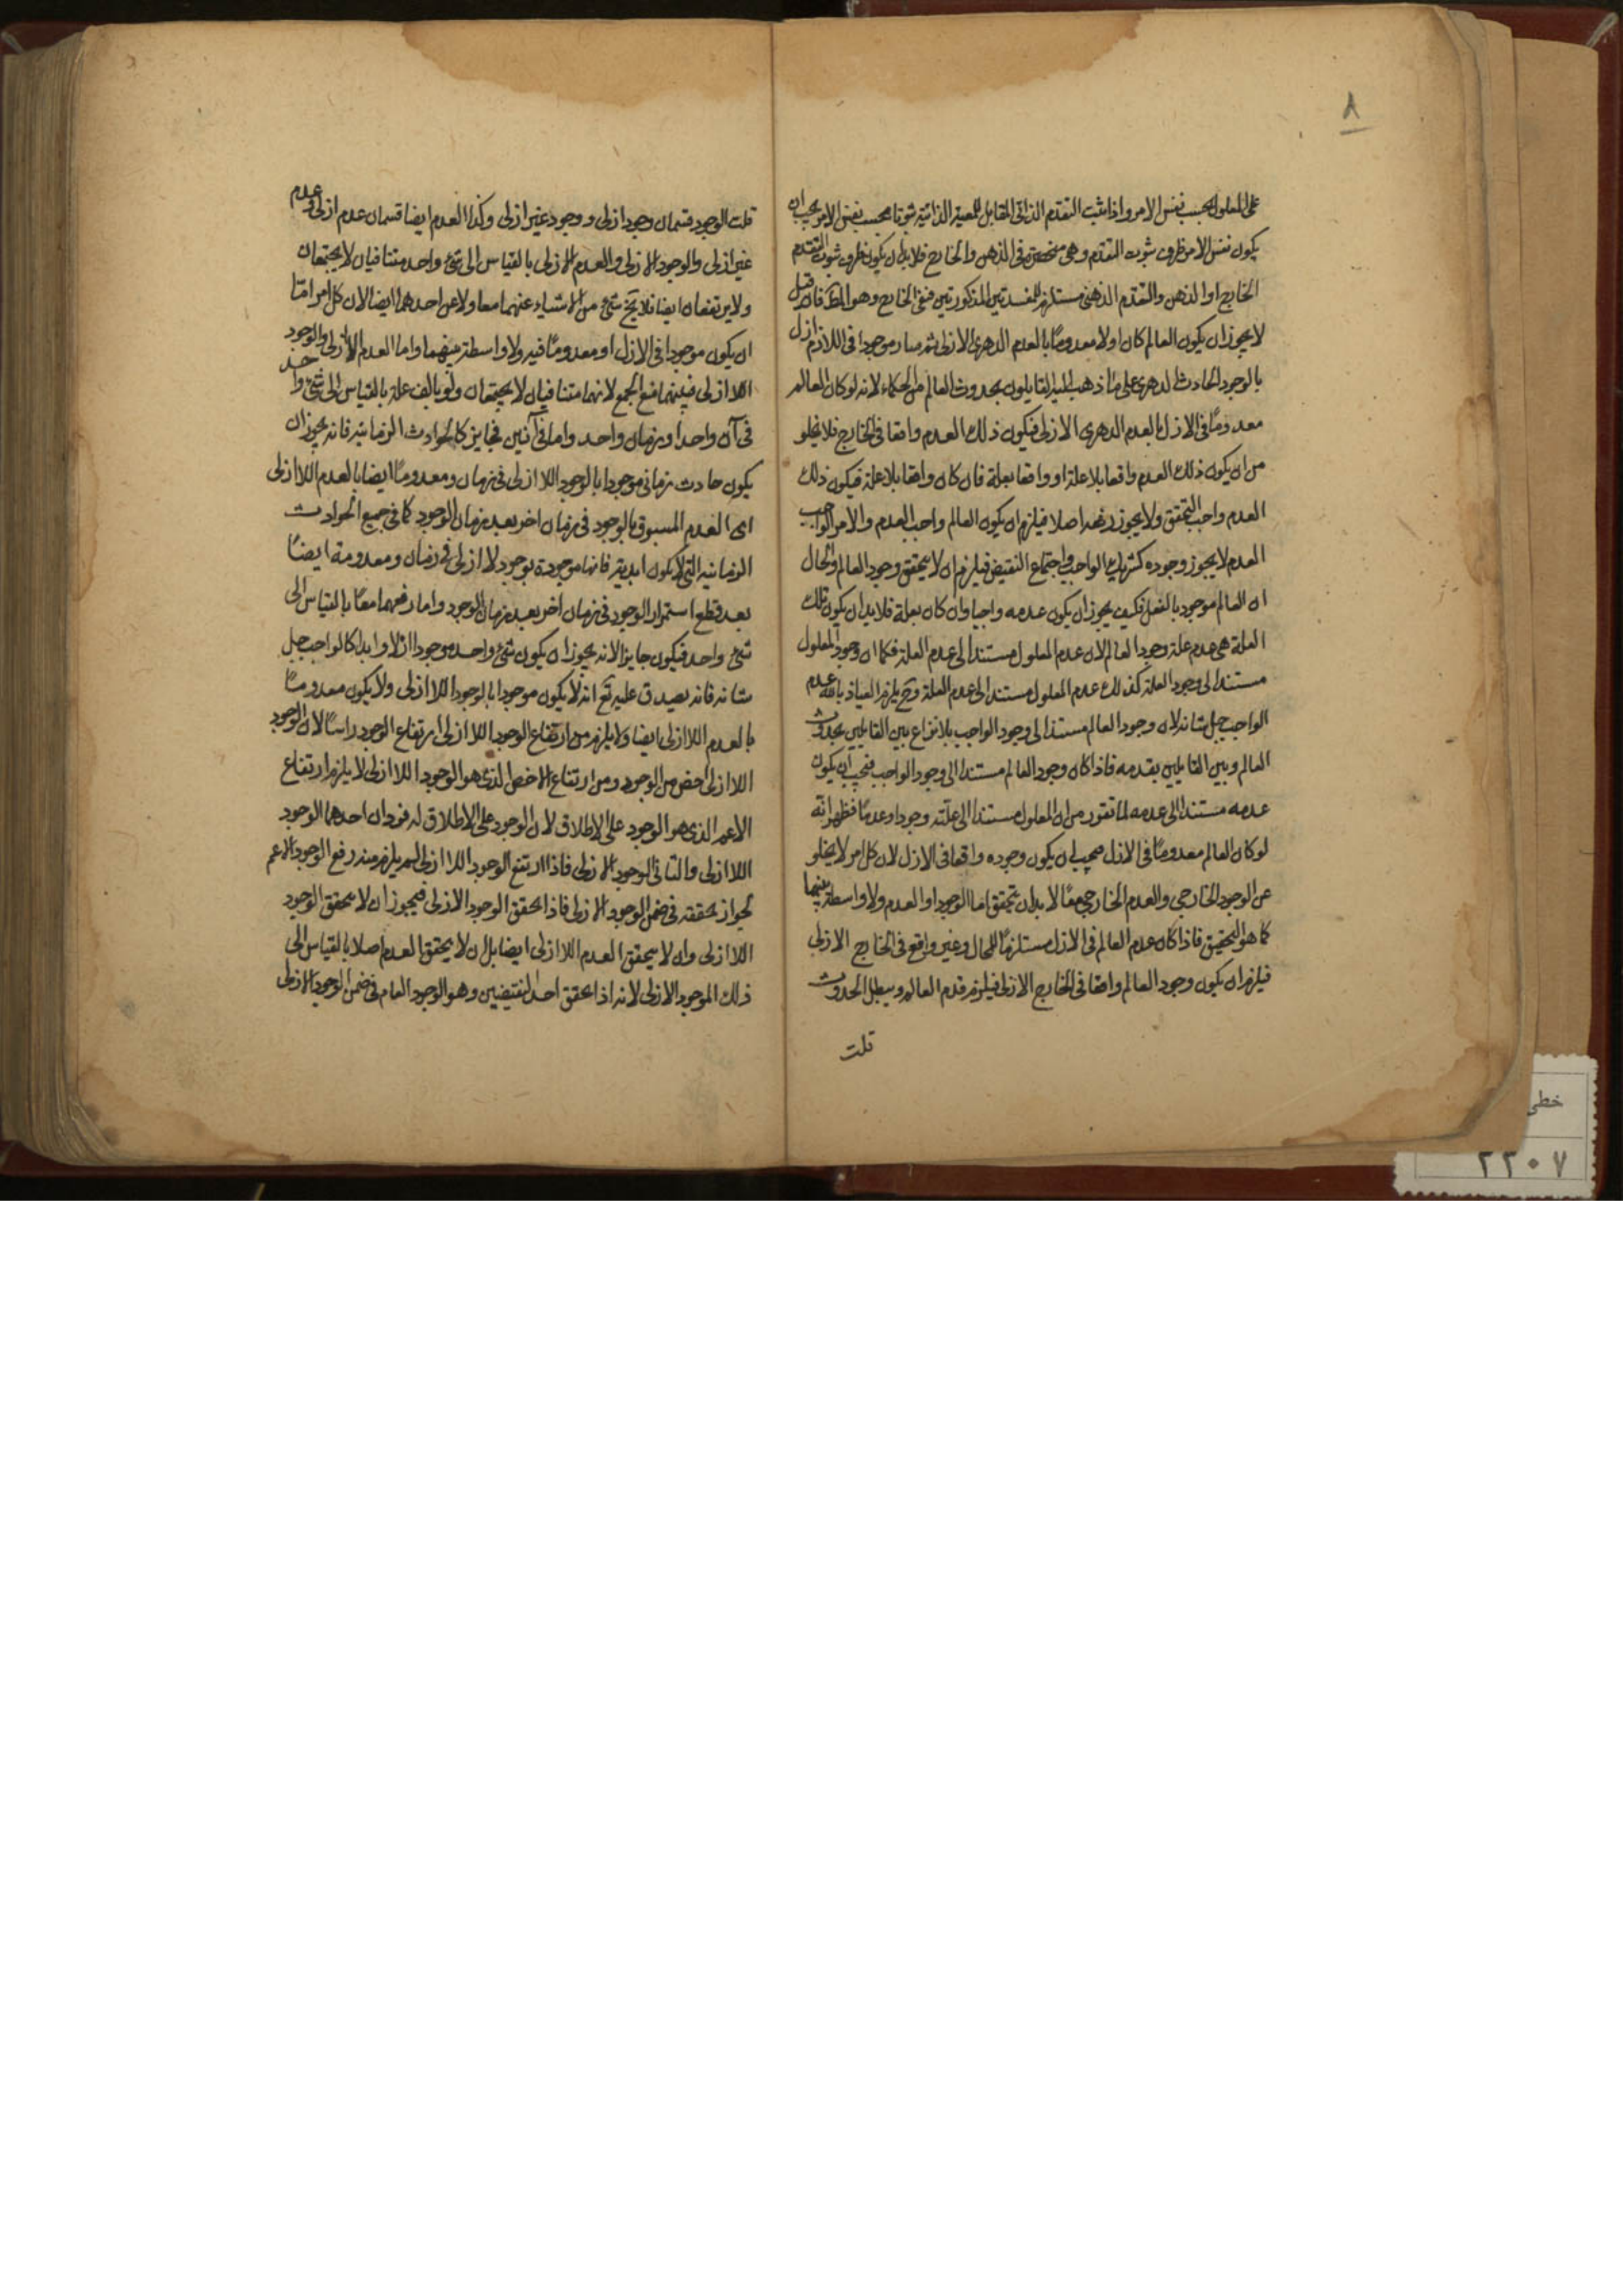 ٨
على المعلول بحسب نفس الامر واذا ثبت التقدم الذاتى المقابل للمعية الذاتية ثبوتا بحسب نفس الامر يجب ان
يكون نفس الامر ظرف ثبوت التقدم وهى منحصرة فى الذهن والخارج فلا بد ان يكون ظرف ثبوت التقدم
الخارج او الذهن والتقدم الذهنى مستلزم للمفسدتين المذكورتين فبقى الخارج وهو المط فان قيل
لا يجوز ان يكون العالم كان اولا معدوما بالعدم الدهرى الازلى ثم صار موجودا فى اللاازل
بالوجود الحادث الدهرى على ما ذهب اليه القايلون بحدوث العالم من الحكماء لانه لو كان العالم
معدوما فى الازل بالعدم الدهرى الازلى فيكون ذلك العدم واقعا فى الخارج فلا يخلو
من ان يكون ذلك العدم واقعا بلا علة او واقعا بعلة فان كان واقعا بلا علة فيكون ذلك
العدم واجب التحقق ولا يجوز رفعه اصلا فيلزم ان يكون العالم واجب العدم والامر الواجب
العدم لا يجوز وجوده كشريك الواجب واجتماع النقيض فيلزم ان لا يتحقق وجود العالم والحال
ان العالم موجود بالفعل فكيف يجوز ان يكون عدمه واجبا وان كان بعلة فلا بد ان يكون تلك
العلة هى عدم علة وجود العالم لان عدم المعلول مستند الى عدم العلة فكما ان وجود المعلول
مستند الى وجود العلة كذلك عدم المعلول مستند الى عدم العلة وح يلزم العياذ بالله عدم
الواجب جل شانه لان وجود العالم مستند الى وجود الواجب بلا نزاع بين القايلين بحدوث
العالم وبين القايلين بقدمه فاذا كان وجود العالم مستندا الى وجود الواجب فيجب ان يكون
عدمه مستندا الى عدمه لما تقرر من ان المعلول مستند الى علته وجودا وعدما فظهر انه
لو كان العالم معدوما فى الازل فيجب ان يكون وجوده واقعا فى الازل لان كل امر لا يخلو
عن الوجود الخارجى والعدم الخارجى معا لا بد ان يتحقق اما الوجود او العدم ولا واسطة بينهما
كما هو التحقيق فاذا كان عدم العالم فى الازل مستلزما للمحال وغير واقع فى الخارج الازلى
فيلزم ان يكون وجود العالم واقعا فى الخارج الازلى فيلزم قدم العالم ويبطل الحدوث
قلت
قلت الوجود قسمان وجود ازلى ووجود غير ازلى وكذا العدم ايضا قسمان عدم ازلى وعدم
غير ازلى والوجود الازلى والعدم الازلى بالقياس الى شئ واحد متنافيان لا يجتمعان
ولا يرتفعان ايضا فلا يخ شئ من الاشياء عنهما معا ولا عن احدهما ايضا لان كل امر اما
ان يكون موجودا فى الازل او معدوما فيه ولا واسطة بينهما واما العدم الازلى والوجود
اللاازلى فبينهما منع الجمع لانهما متنافيان لا يجتمعان بالقياس الى شئ واحد
فى آن واحد او زمان واحد واما فى آنين فجايز كالحوادث الزمانية فانه يجوز ان
يكون حادث زمانى موجودا بالوجود اللاازلى فى زمان ومعدوما ايضا بالعدم اللاازلى
اى العدم المسبوق بالوجود فى زمان اخر بعد زمان الوجود كما فى جميع الحوادث
الزمانية التى لا يكون ابدية فانها موجودة بوجود لا ازلى فى زمان ومعدومة ايضا
بعد قطع استمرار الوجود فى زمان اخر بعد زمان الوجود واما رفعهما معا بالقياس الى
شئ واحد فيكون جايزا لانه يجوز ان يكون شئ واحد موجودا ازلا وابدا كالواجب جل
شانه فانه يصدق عليه تع انه لا يكون موجودا بالوجود اللاازلى ولا يكون معدوما
بالعدم اللاازلى ايضا ولا يلزم من ارتفاع الوجود اللاازلى ارتفاع الوجود راسا لان الوجود
اللاازلى اخص من الوجود ومن ارتفاع الاخص الذى هو الوجود اللاازلى لا يلزم ارتفاع
الاعم الذى هو الوجود على الاطلاق لان الوجود على الاطلاق له فردان احدهما الوجود
اللاازلى والثانى الوجود الازلى فاذا ارتفع الوجود اللاازلى لم يلزم منه رفع الوجود الاعم
لجواز تحققه فى ضمن الوجود الازلى فاذا تحقق الوجود الازلى فيجوز ان لا يتحقق الوجود
اللاازلى وان لا يتحقق العدم اللاازلى ايضا بل ان لا يتحقق العدم اصلا بالقياس الى
ذلك الموجود الازلى لانه اذا تحقق احد النقيضين وهو الوجود العام فى ضمن الوجود الازلى
خطى
٢٢٠٧